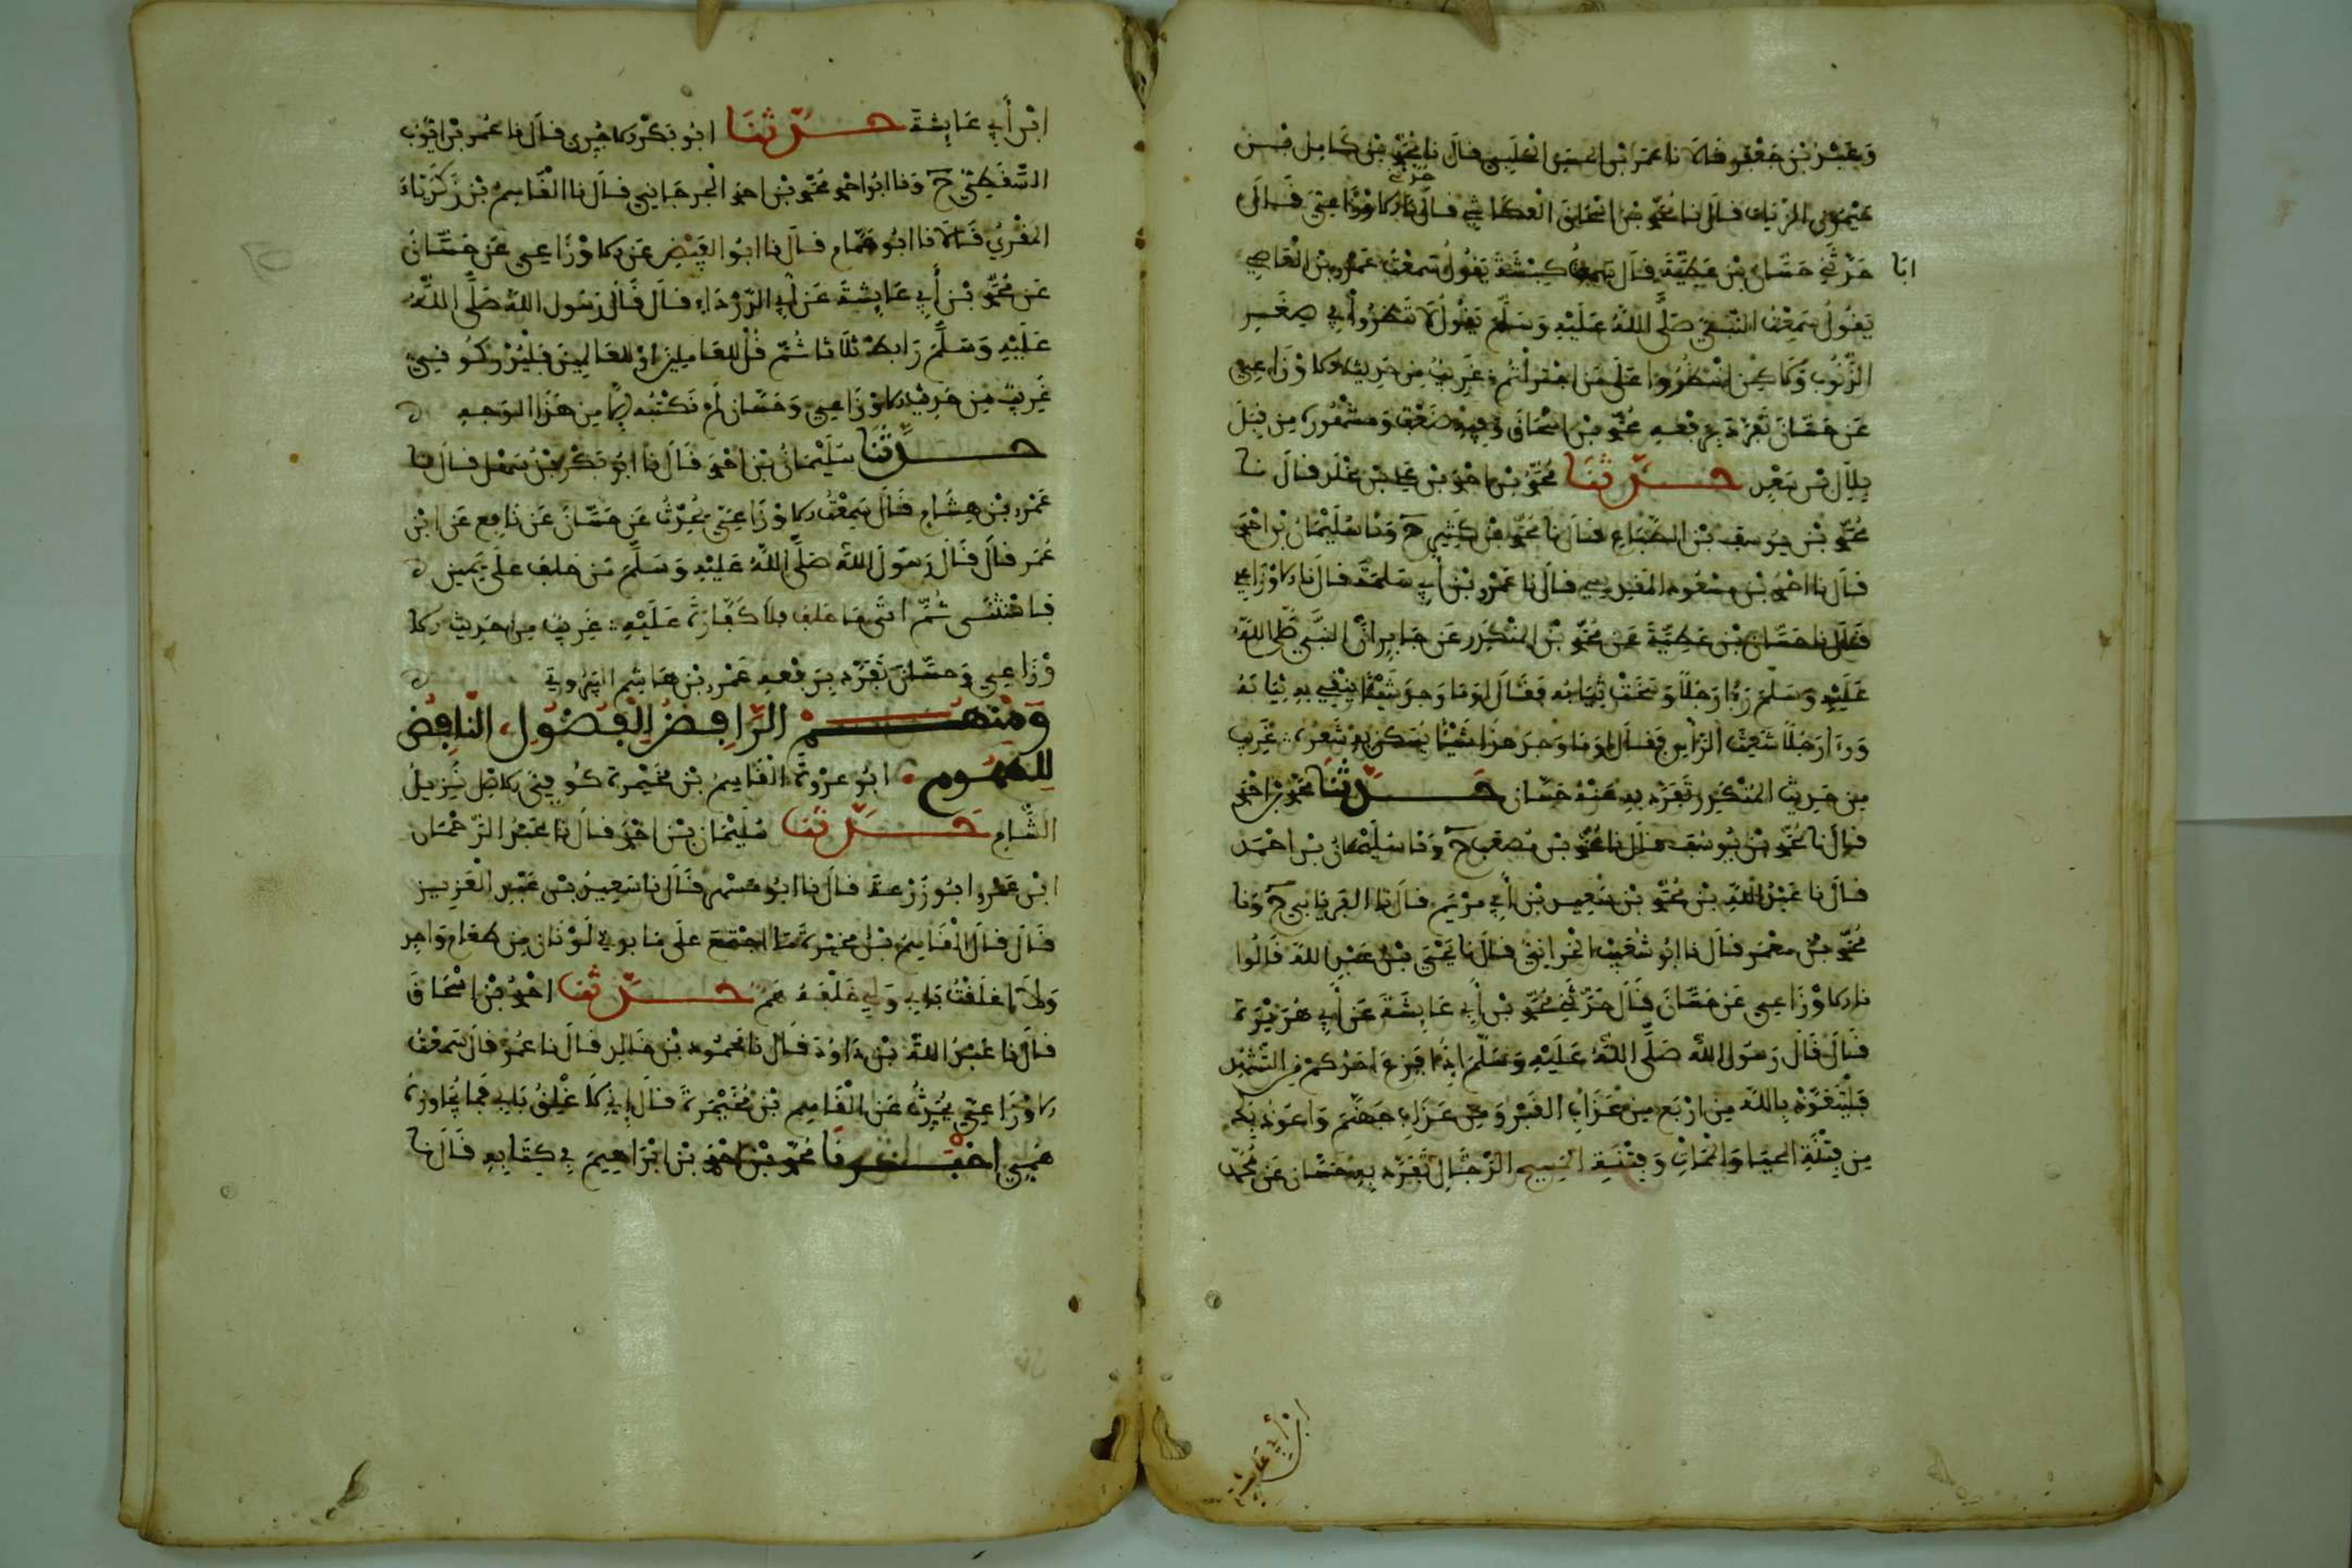 وعبد بن جعفر قالا نا عمر ابن الحسن الحلبي قال نا محمد بن كامل بن
ميمون الزيات قال نا محمد بن اسحاق العكاشي قال نا الاوزاعي قال
حدثني حسان بن عطية قال سمعت ابا كبشة يقول سمعت عمرو بن العاصي
يقول سمعت النبي صلى الله عليه وسلم يقول لا تنظروا في صغر
الذنوب ولاكن انظروا على من اجترأتم غريب من حديث الاوزاعي
عن حسان تفرد برفعه محمد بن اسحاق وفيه ضعف ومشهوره من قبل
بلال بن سعد حدثنا محمد بن احمد بن علي بن مخلد قال نا
محمد بن يوسف بن الطباع قال نا محمد بن كثير ح ونا سليمان بن احمد
قال نا احمد بن مسعود المقدسي قال نا عمرو بن أبي سلمة قال نا الاوزاعي
قال نا حسان بن عطية عن محمد بن المنكدر عن جابر ان النبي صلى الله
عليه وسلم رءا رجلا وسخت ثيابه فقال اوما وجد شيئا ينقي به ثيابه
ورءا رجلا شعث الرأس فقال اوما وجد هذا شيئا يسكن به شعره غريب
من حديث المنكدر تفرد به عنه حسان حدثنا محمد بن احمد
قال نا محمد بن يوسف قال نا محمد بن مصعب ح ونا سليمان بن احمد
قال نا عبد الله بن محمد بن سعيد بن أبي مريم قال نا الفريابي ح ونا
محمد بن معمر قال نا ابو شعيب الحراني قال نا يحيى بن عبد الله قالوا
نا الاوزاعي عن حسان قال حدثني محمد بن أبي عايشة عن أبي هريرة
قال قال رسول الله صلى الله عليه وسلم اذا فرغ احدكم من التشهد
فليتعوذ بالله من اربع من عذاب القبر ومن عذاب جهنم واعوذ بك
من فتنة المحيا والممات وفتنة المسيح الدجال تفرد به حسان عن محمد
ابن أبي عايشة
ابن أبي عايشة حدثنا ابو بكر الاجري قال نا عمر بن ايوب
السقطي ح ونا ابو احمد محمد بن احمد الجرجاني قال نا القاسم بن زكرياء
المقري قالا نا ابو همام قال نا ابو الفيض عن الاوزاعي عن حسان
عن محمد بن أبي عايشة عن أبي الدرداء قال قال رسول الله صلى الله
عليه وسلم ثلاثا ثم
غريب من حديث الاوزاعي وحسان لم نكتبه الا من هذا الوجه
حدثنا سليمان بن احمد قال نا ابو بكر بن سهل قال نا
عمرو بن هشام قال سمعت الاوزاعي يحدث عن حسان عن نافع عن ابن
عمر قال قال رسول الله صلى الله عليه وسلم من حلف على يمين
فاستثنى ثم اتى ما حلف فلا كفارة عليه غريب من حديث الا
وزاعي وحسان تفرد برفعه عمرو بن هاشم البيروتي
ومنهم الرافض للفضول الناقض
للهموم ابو عروة القاسم بن مخيمرة كوفي الاصل نزيل
الشام حدثنا سليمان بن احمد قال نا عبد الرحمان
ابن عمرو ابو زرعة قال نا ابو مسهر قال نا سعيد بن عبد العزيز
قال قال القاسم بن مخيمرة ما اجتمع على مايدتي لونان من طعام واحد
ولا اغلقت بابي ولي خلفه هم حدثنا احمد بن اسحاق
قال نا عبد الله بن داود قال نا محمود بن خالد قال نا عمر قال سمعت
الاوزاعي يحدث عن القاسم بن مخيمرة قال إني لاغلق بابي فما يجاوزه
همي اخبرنا محمد بن احمد بن ابراهيم في كتابه قال نا